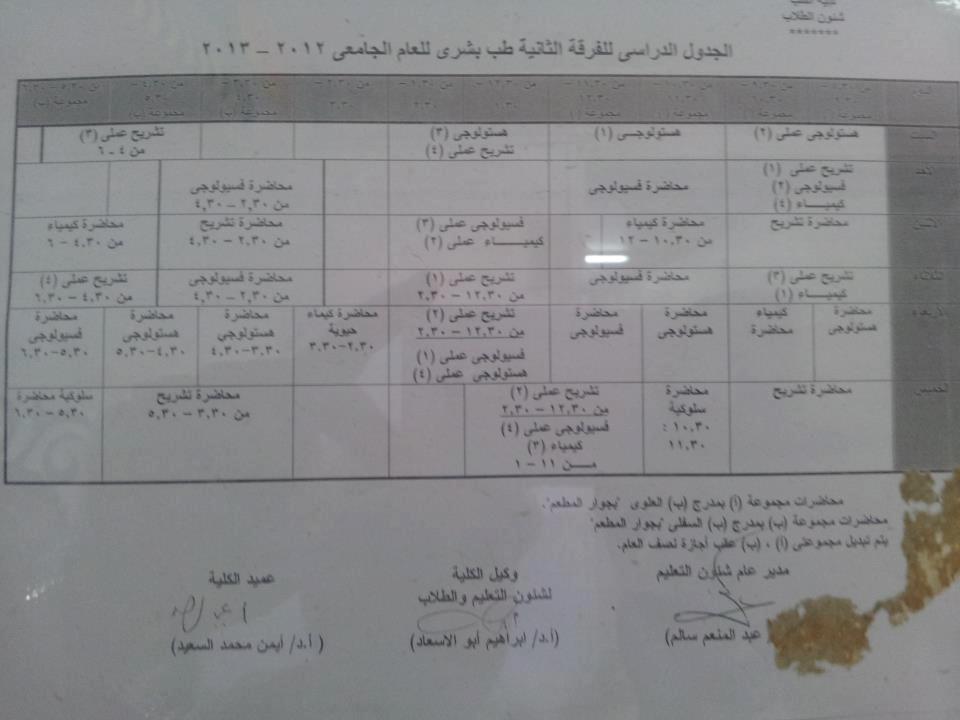 كلية الطب
شئون الطلاب
*******
الجدول الدراسى للفرقة الثانية طب بشرى للعام الجامعى ٢٠١٢ – ٢٠١٣
السبت
هستولوجى عملى (٢)
هستولوجى (١)
هستولوجى (٣)
تشريح عملى (٤)
تشريح عملى (٣)
من ٤ – ٦
الأحد
تشريح عملى (١)
فسيولوجى (٢)
كيمياء (٤)
محاضرة فسيولوجى
محاضرة فسيولوجى
من ٢,٣٠ – ٤,٣٠
محاضرة تشريح
محاضرة كيمياء
من ١٠,٣٠ – ١٢
فسيولوجى عملى (٣)
كيمياء عملى (٢)
محاضرة تشريح
من ٢,٣٠ – ٤,٣٠
محاضرة كيمياء
من ٤,٣٠ – ٦
الثلاثاء
تشريح عملى (٣)
كيمياء (١)
محاضرة فسيولوجى
تشريح عملى (١)
من ١٢,٣٠ – ٢,٣٠
محاضرة فسيولوجى
من ٢,٣٠ – ٤,٣٠
تشريح عملى (٤)
من ٤,٣٠ – ٦,٣٠
الأربعاء
محاضرة
هستولوجى
كيمياء
محاضرة
محاضرة
هستولوجى
محاضرة
فسيولوجى
تشريح عملى (٢)
من ١٢,٣٠ – ٢,٣٠
فسيولوجى عملى (١)
هستولوجى عملى (٤)
محاضرة كيماء
حيوية
٢,٣٠–٣,٣٠
محاضرة
هستولوجى
٣,٣٠–٤,٣٠
محاضرة
هستولوجى
٤,٣٠–٥,٣٠
محاضرة
فسيولوجى
٥,٣٠–٦,٣٠
الخميس
محاضرة تشريح
محاضرة
سلوكية
١٠,٣٠ :
١١,٣٠
تشريح عملى (٢)
من ١٢,٣٠ – ٢,٣٠
فسيولوجى عملى (٤)
كيمياء (٣)
مـــن ١١ – ١
محاضرة تشريح
من ٣,٣٠ – ٥,٣٠
سلوكية محاضرة
٥,٣٠ – ٦,٣٠
محاضرات مجموعة (أ) بمدرج (ب) العلوى "بجوار المطعم".
محاضرات مجموعة (ب) بمدرج (ب) السفلى "بجوار المطعم"
يتم تبديل مجموعتى (أ) ، (ب) عقب أجازة نصف العام.
مدير عام شئون التعليم
عبد المنعم سالم)
وكيل الكلية
لشئون التعليم والطلاب
(أ.د/ ابراهيم أبو الاسعاد)
عميد الكلية
(أ.د/ أيمن محمد السعيد)